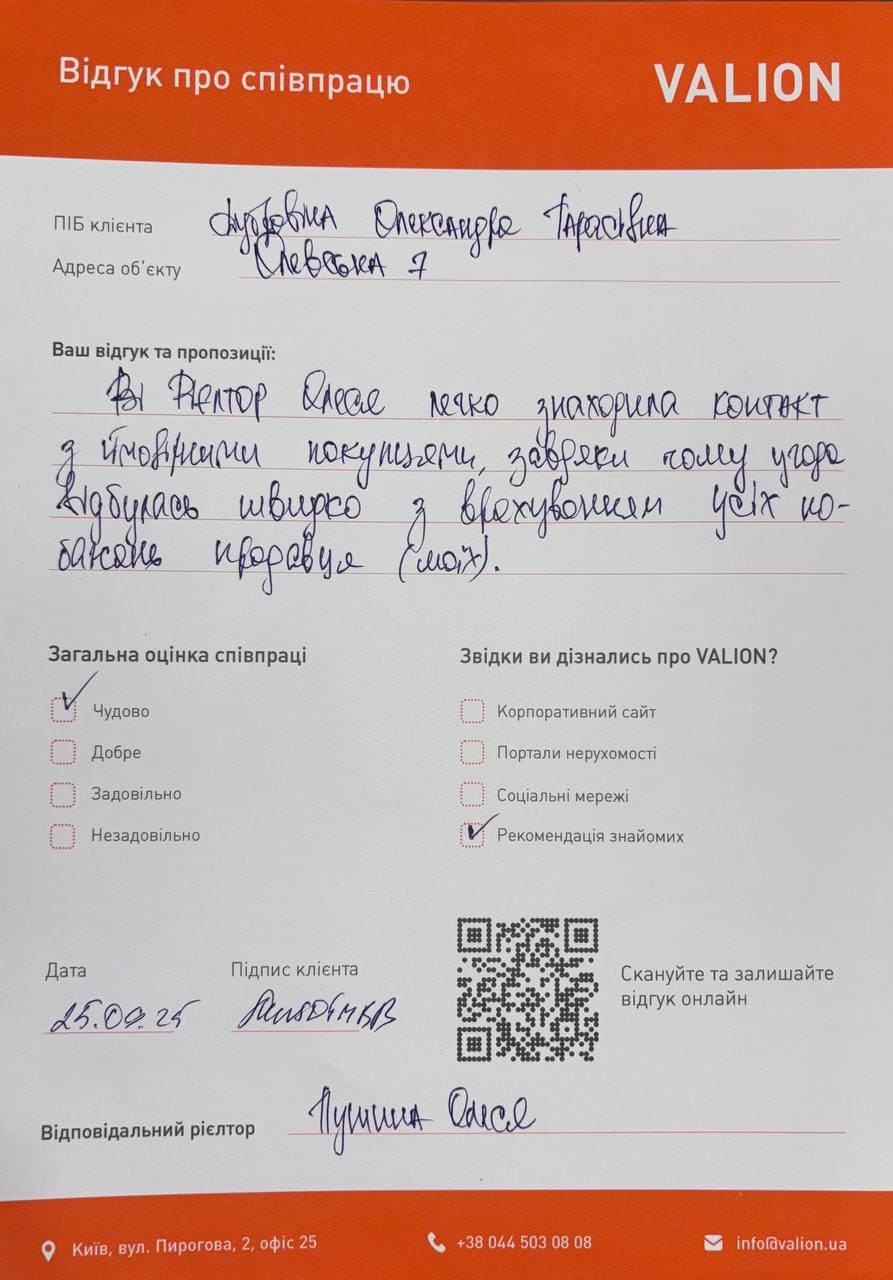 Відгук про співпрацю
VALION
ПІБ клієнта Олександра Тарасівна
Адреса об'єкту Олевська 7
Ваш відгук та пропозиції:
Рієлтор Олеся легко знаходила контакт
з ймовірними покупцями, завдяки чому угода
відбулась швидко з врахуванням усіх по-
бажань продавця (моїх).
Загальна оцінка співпраці
Чудово
Добре
Задовільно
Незадовільно
Звідки ви дізнались про VALION?
Корпоративний сайт
Портали нерухомості
Соціальні мережі
Рекомендація знайомих
Дата
25.09.25
Підпис клієнта
Скануйте та залишайте
відгук онлайн
Відповідальний рієлтор Олеся
Київ, вул. Пирогова, 2, офіс 25
+38 044 503 08 08
info@valion.ua